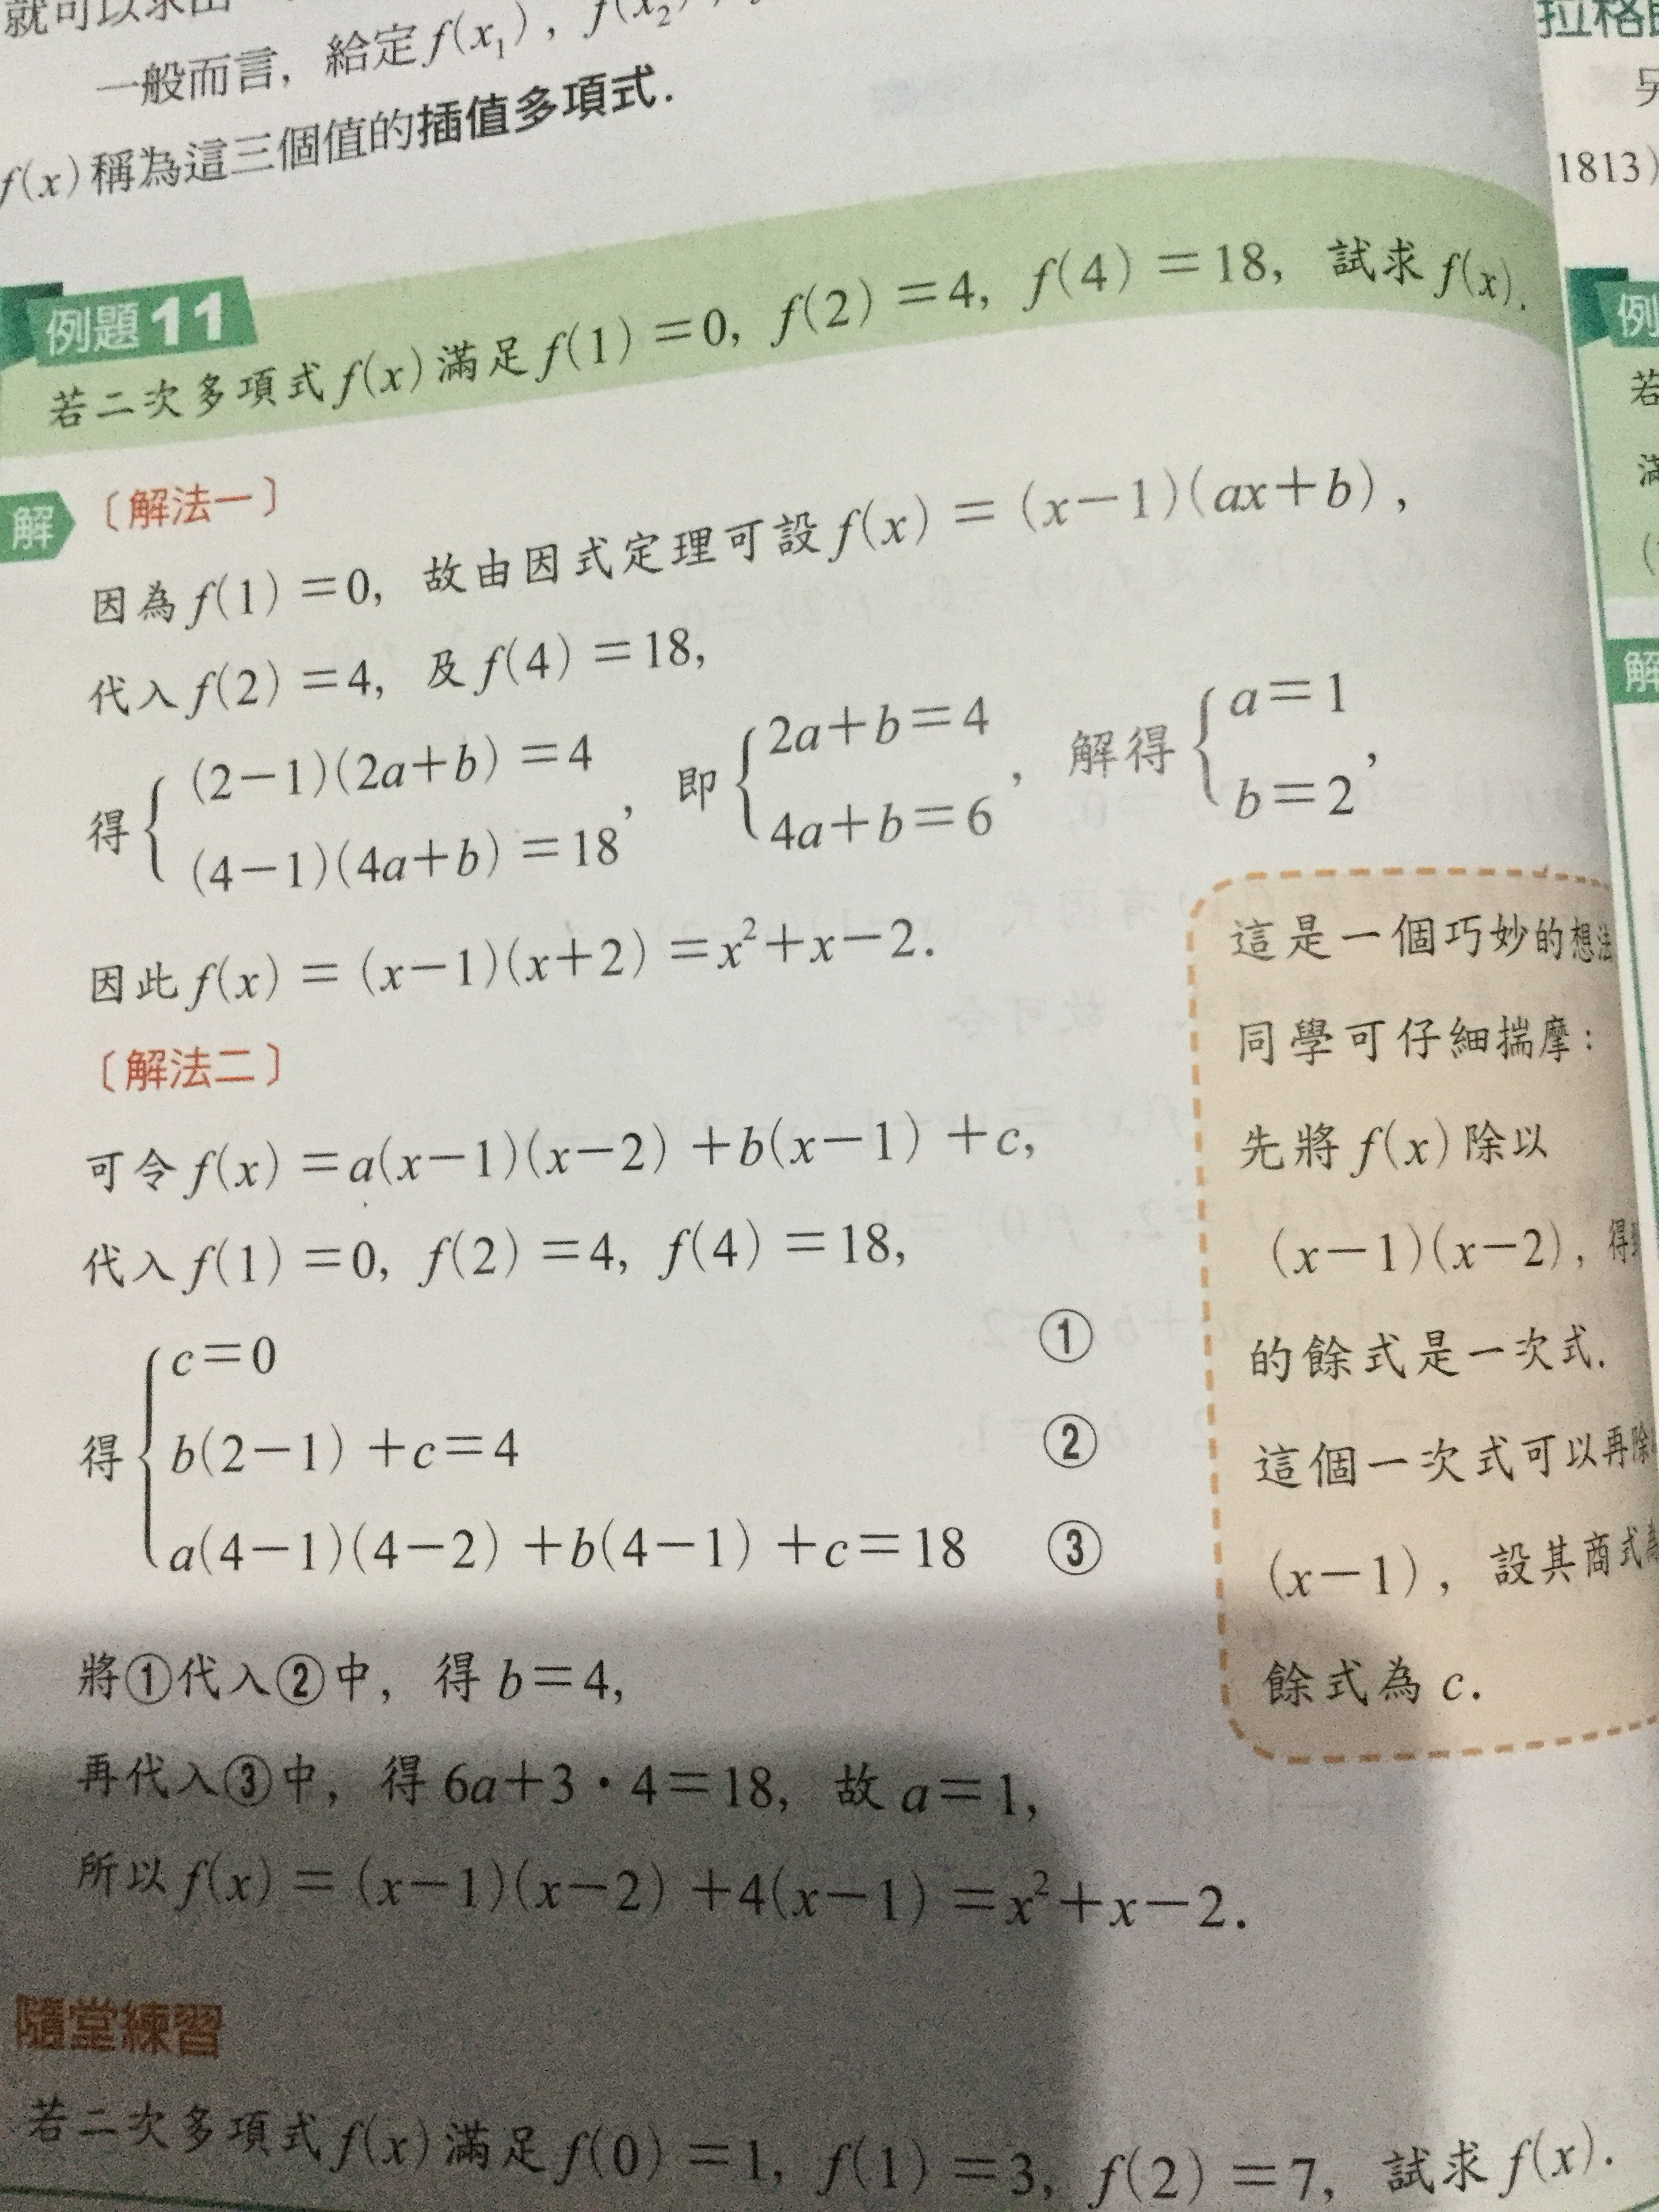 就可以求出
一般而言，給定 f(x₁)，f(x₂)，
f(x) 稱為這三個值的插值多項式．
例題11
若二次多項式 f(x) 滿足 f(1)＝0, f(2)＝4, f(4)＝18, 試求 f(x).
解
〔解法一〕
因為 f(1)＝0, 故由因式定理可設 f(x)＝(x－1)(ax＋b)，
代入 f(2)＝4, 及 f(4)＝18,
得 { (2－1)(2a＋b)＝4 , 即 { 2a＋b＝4 , 解得 { a＝1 ,
(4－1)(4a＋b)＝18 4a＋b＝6 b＝2
因此 f(x)＝(x－1)(x＋2)＝x²＋x－2.
〔解法二〕
可令 f(x)＝a(x－1)(x－2)＋b(x－1)＋c,
代入 f(1)＝0, f(2)＝4, f(4)＝18,
得 { c＝0 ①
b(2－1)＋c＝4 ②
a(4－1)(4－2)＋b(4－1)＋c＝18 ③
將①代入②中, 得 b＝4,
再代入③中, 得 6a＋3·4＝18, 故 a＝1,
所以 f(x)＝(x－1)(x－2)＋4(x－1)＝x²＋x－2.
這是一個巧妙的想法
同學可仔細揣摩：
先將 f(x) 除以
(x－1)(x－2), 得
的餘式是一次式.
這個一次式可以再除
(x－1), 設其商式為
餘式為 c.
隨堂練習
若二次多項式 f(x) 滿足 f(0)＝1, f(1)＝3, f(2)＝7, 試求 f(x).
拉格
另
1813)
例
若
滿
(
解